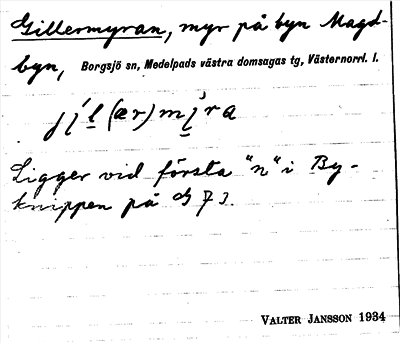 Gillermyran, myr på byn Magd-
byn, Borgsjö sn, Medelpads västra domsagas tg, Västernorrl. l.
Ligger vid första "n" i By-
knippen på 73.
VALTER JANSSON 1934